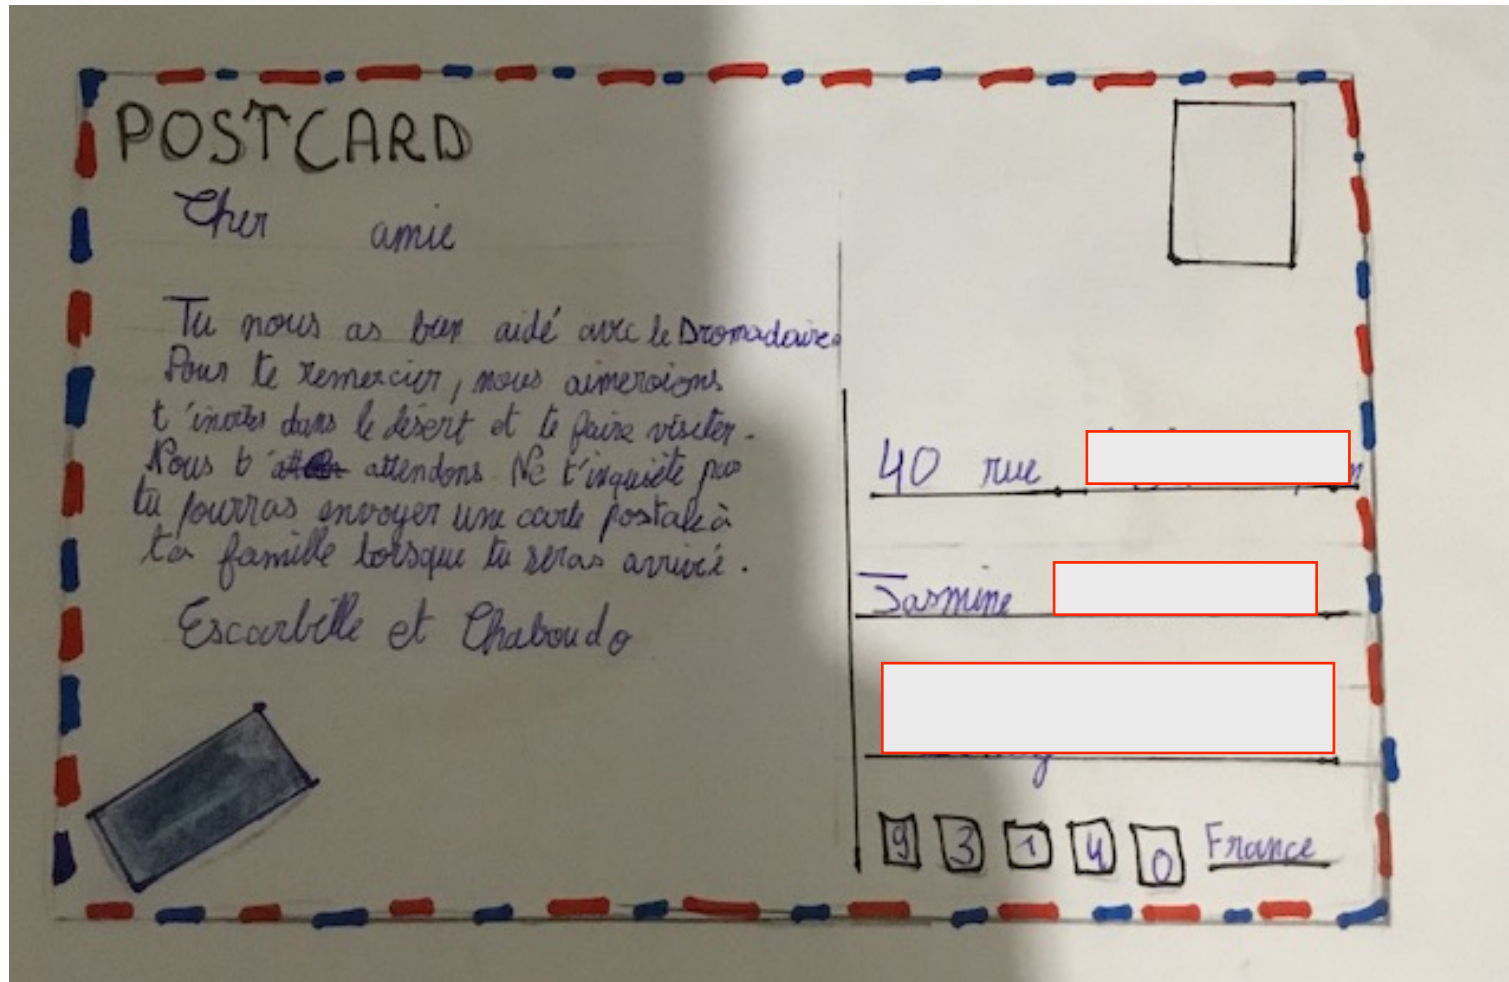 POSTCARD
Cher amie
Tu nous as bien aidé avec le Dromadaire.
Pour te remercier, nous aimerions
t'inviter dans le désert et te faire visiter.
Nous t'attendons. Ne t'inquiète pas
tu pourras envoyer une carte postale à
ta famille lorsque tu seras arrivé.
Escarbille et Chaboudo
40 rue
Jasmine
93140 France